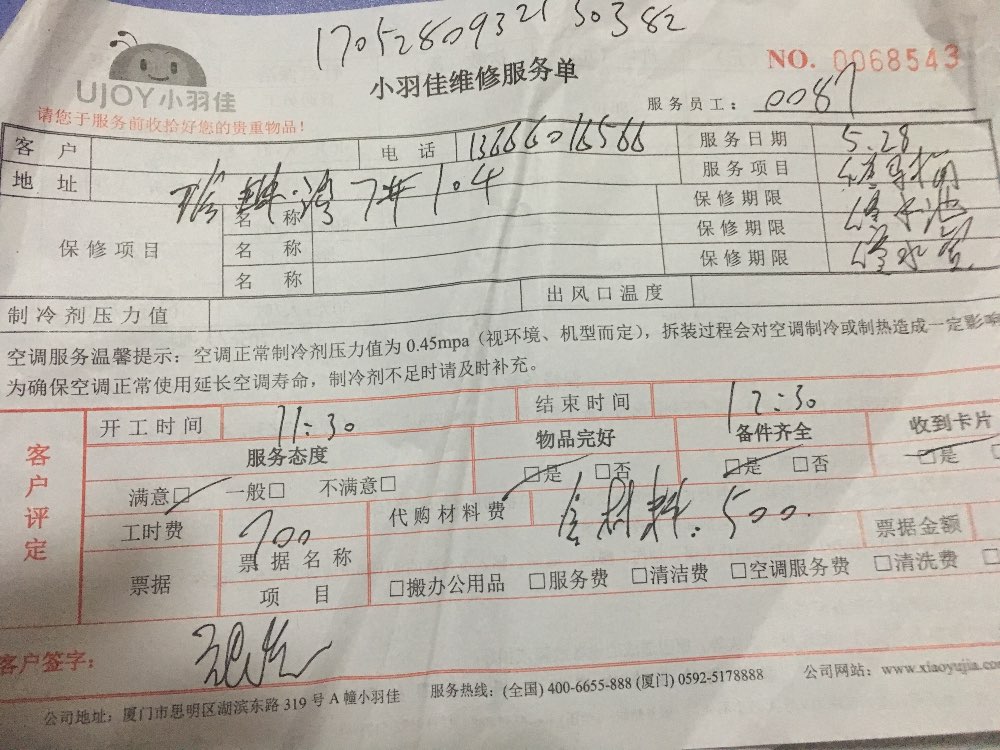 17052809321 30382
UJOY小羽佳
小羽佳维修服务单
NO. 0068543
请您于服务前收拾好您的贵重物品！
服务员工： 0087
客户 电话 13666016566 服务日期 5.28
地址 7# 104 服务项目
保修项目 名称 保修期限
名称 保修期限
名称 保修期限
制冷剂压力值 出风口温度
空调服务温馨提示：空调正常制冷剂压力值为 0.45mpa（视环境、机型而定），拆装过程会对空调制冷或制热造成一定影响
为确保空调正常使用延长空调寿命，制冷剂不足时请及时补充。
客户评定
开工时间 11:30 结束时间 12:30
服务态度 物品完好 备件齐全 收到卡片
满意□ 一般□ 不满意□ □是 □否 □是 □否 □是
工时费 700 代购材料费 含材料.500. 票据金额
票据 票据名称
项目 □搬办公用品 □服务费 □清洁费 □空调服务费 □清洗费
客户签字：
公司地址：厦门市思明区湖滨东路 319 号 A 幢小羽佳 服务热线：(全国) 400-6655-888 (厦门) 0592-5178888 公司网站：www.xiaoyujia.co